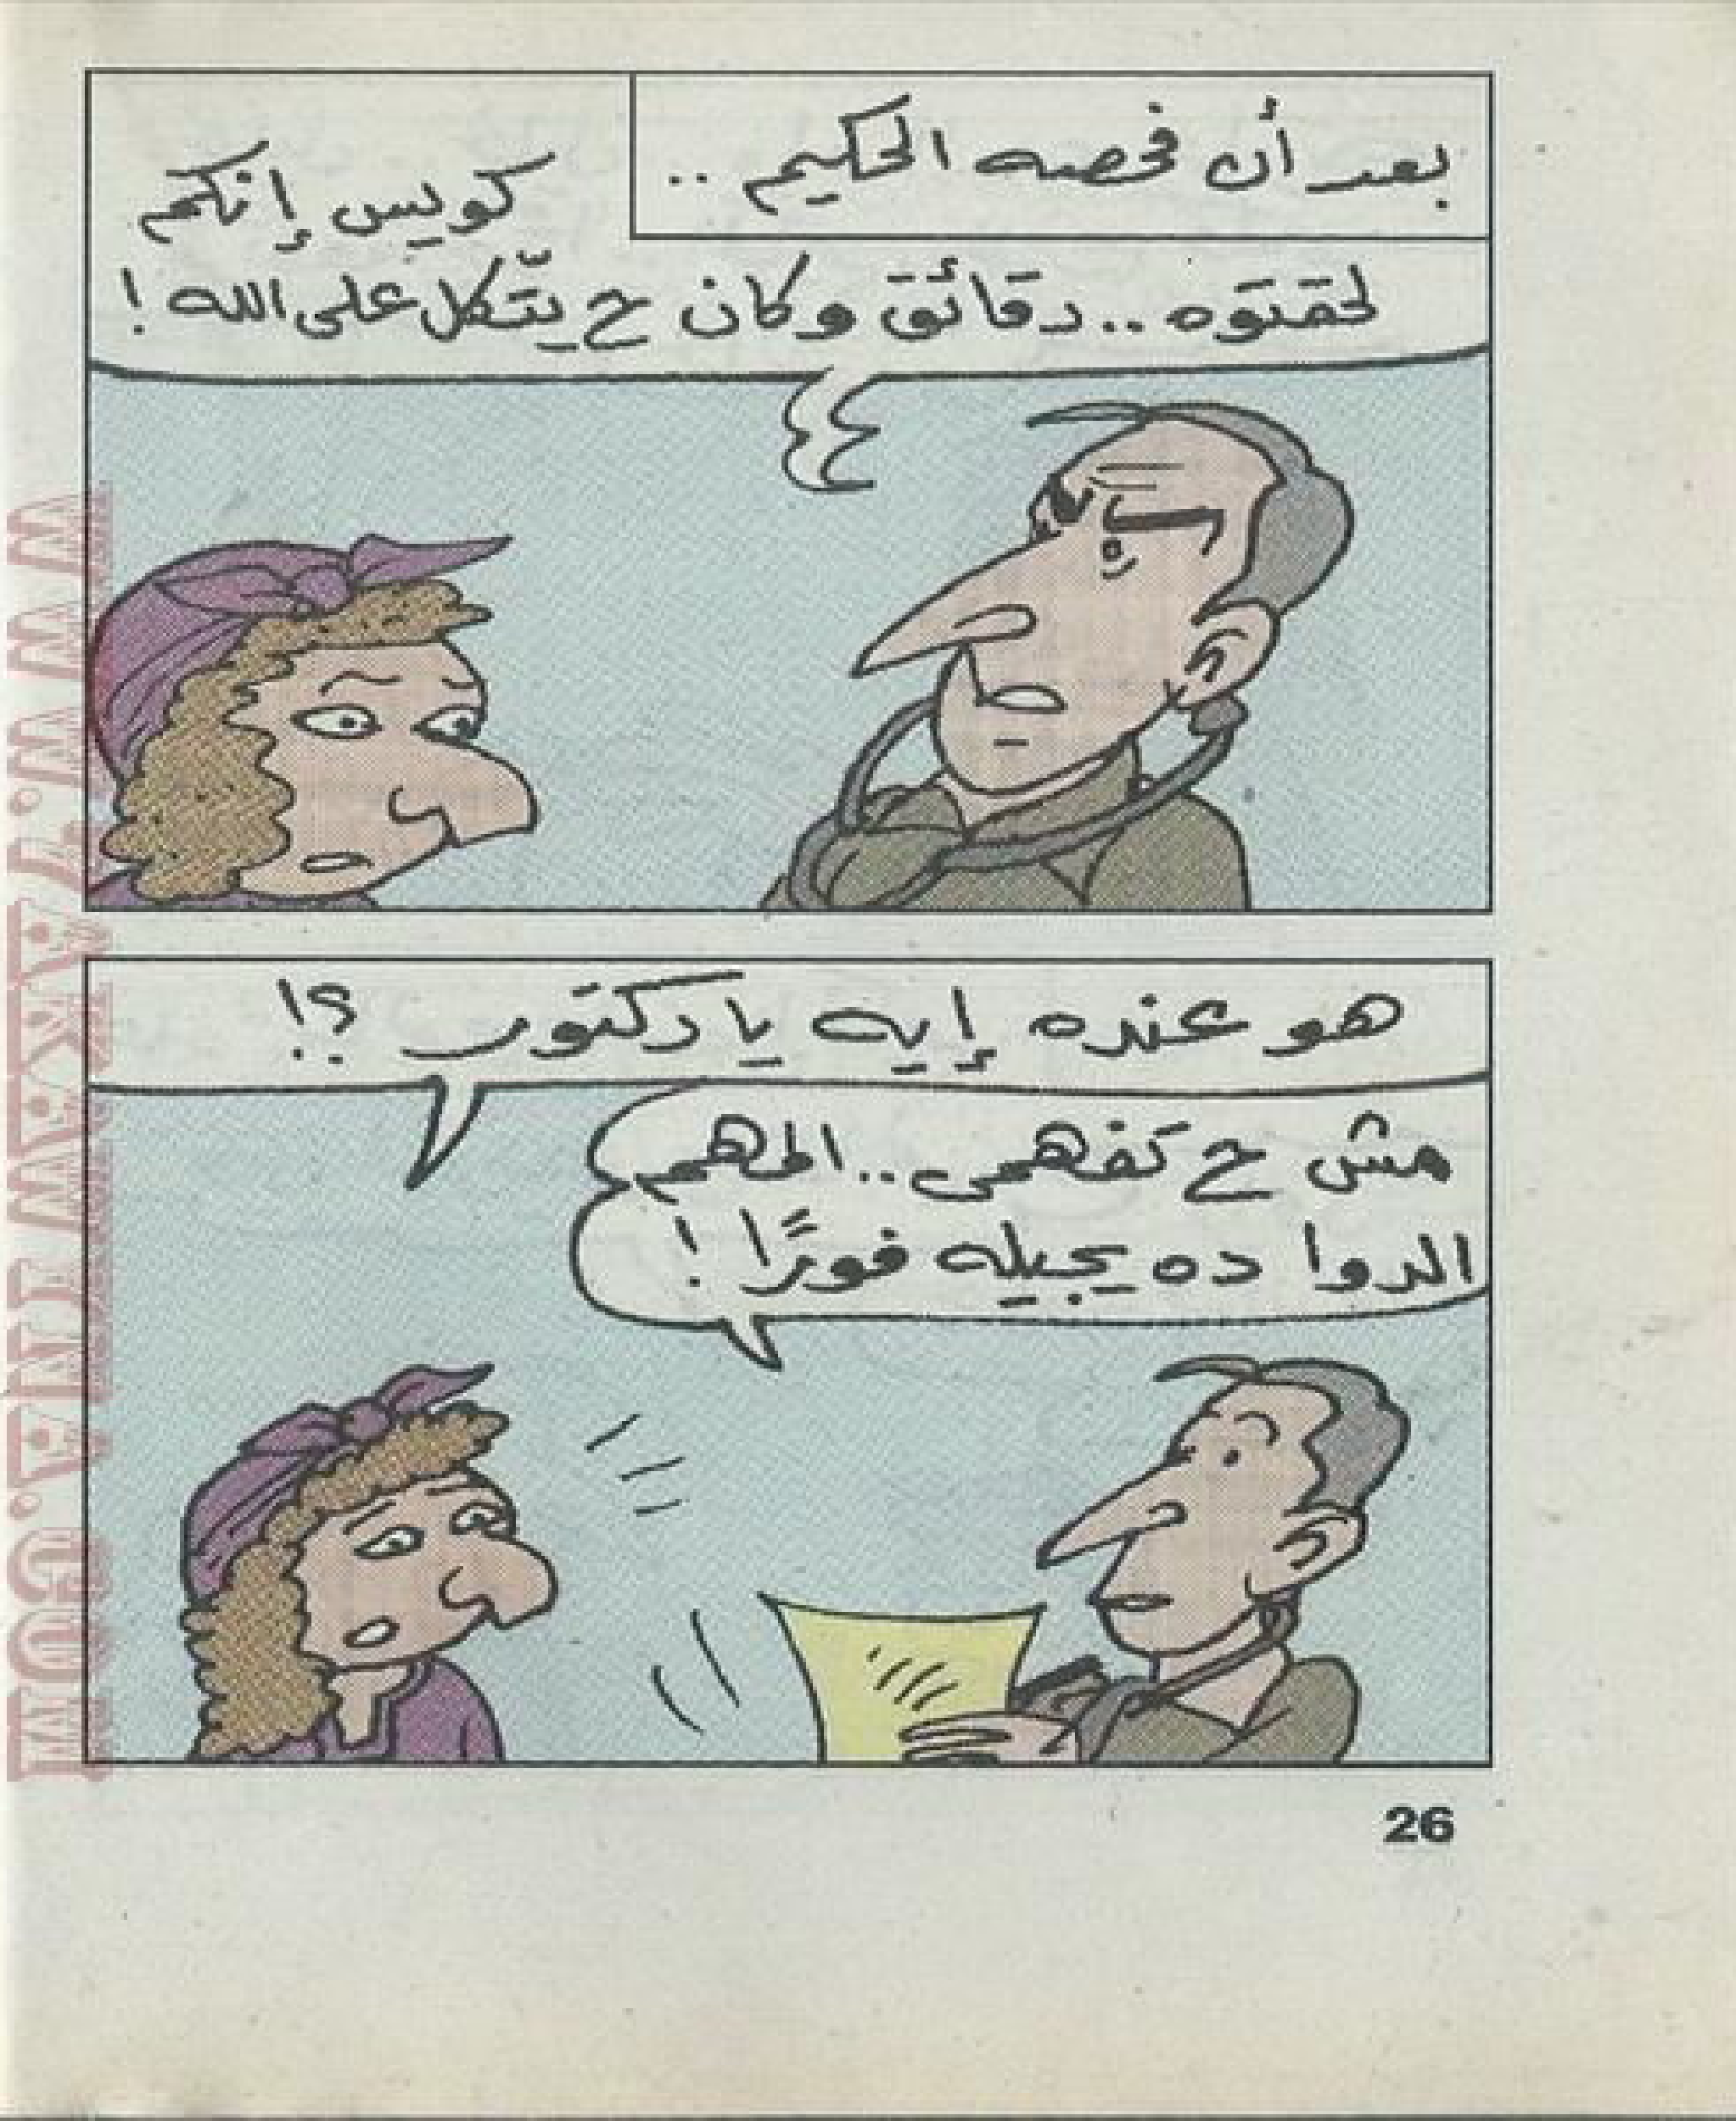 بعد أن فحصه الحكيم ..
كويس إنكم
لحقتوه .. دقائق وكان ح يتّكل على الله !
هو عنده إيه يا دكتور ؟!
مش ح تفهمى .. المهم
الدوا ده يجيله فورًا !
26
WWW.7AKAWINEWA.COM